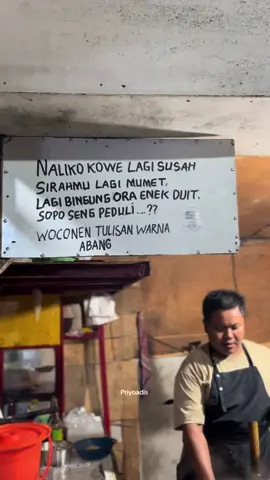 NALIKO KOWE LAGI SUSAH
SIRAHMU LAGI MUMET,
LAGI BINGUNG ORA ENEK DUIT.
SOPO SENG PEDULI....??
WOCONEN TULISAN WARNA
ABANG
Priyoadis